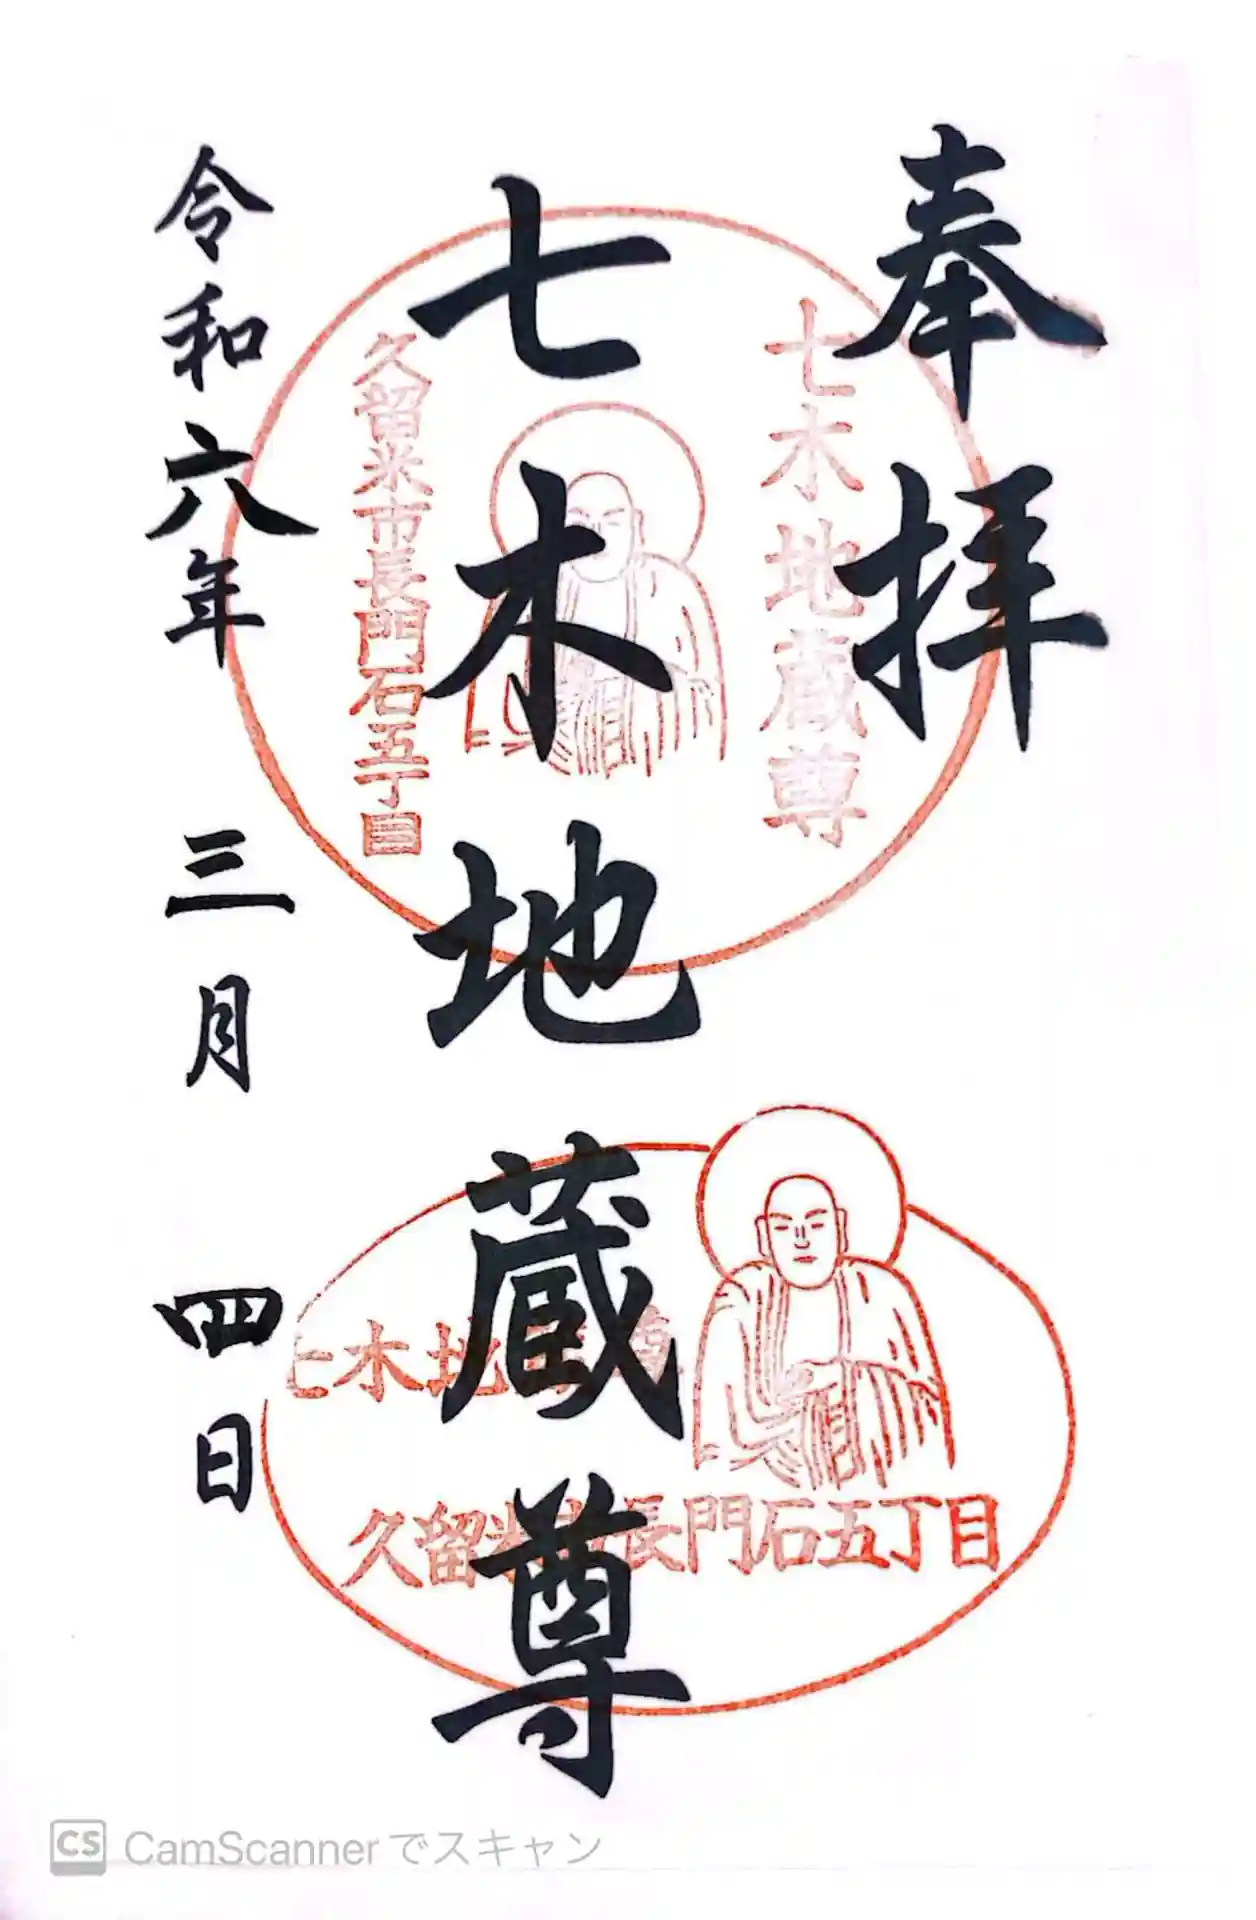 奉拝
七木地蔵尊
令和六年 三月 四日
七木地蔵尊
久留米市長門石五丁目
七木地蔵尊
久留米市長門石五丁目
CS CamScannerでスキャン